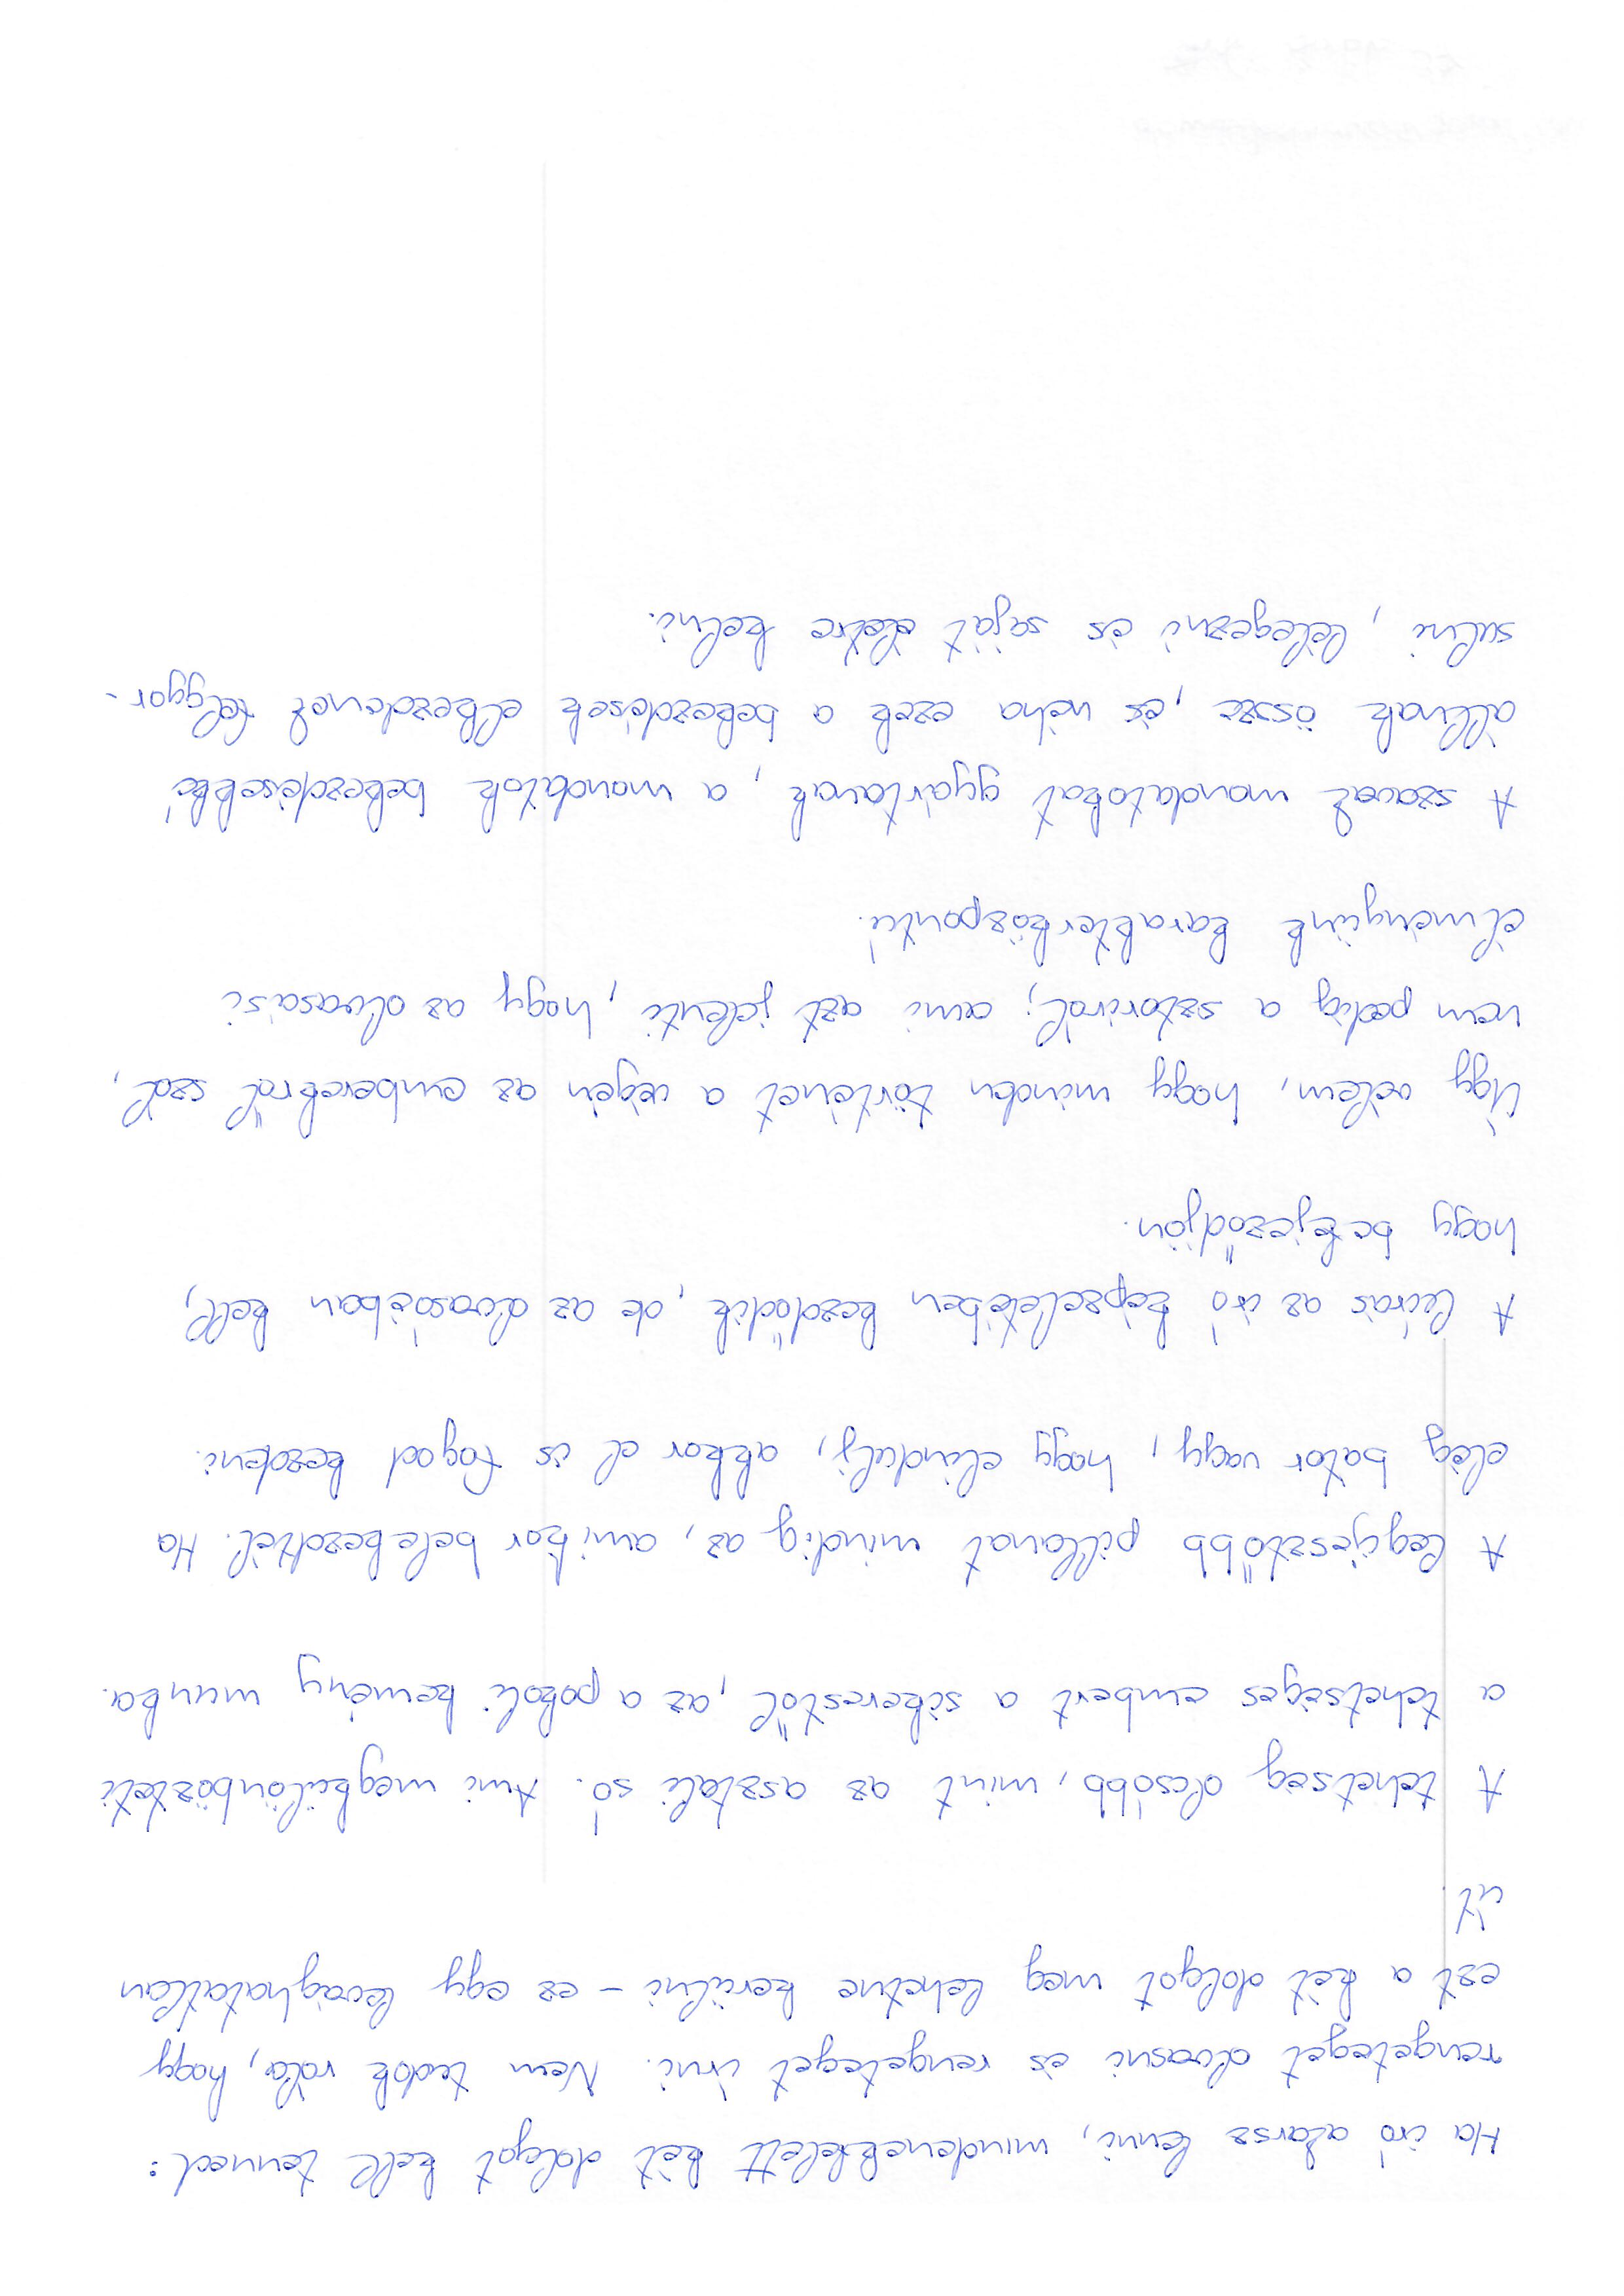 Ha író akarsz lenni, mindenekfelett két dolgot kell tenned:
rengeteget olvasni és rengeteget írni. Nem tudok róla, hogy
ezt a két dolgot meg lehetne kerülni – ez egy levághatatlan
út.
A tehetség olcsóbb, mint az asztali só. Ami megkülönbözteti
a tehetséges embert a sikerestől, az a pokoli kemény munka.
A legijesztőbb pillanat mindig az, amikor belekezdtél. Ha
elég bátor vagy, hogy elindulj, akkor el is fogod kezdeni.
A leírás az író képzeletében kezdődik, de az olvasóéban kell,
hogy befejeződjön.
Úgy vélem, hogy minden történet a végén az emberekről szól,
nem pedig a sztoriról; ami azt jelenti, hogy az olvasási
élményünk karakterközpontú.
A szavak mondatokat gyártanak, a mondatok bekezdésekké
állnak össze, és néha ezek a bekezdések elkezdenek felgyor-
sulni, lélegezni és saját életre kelni.